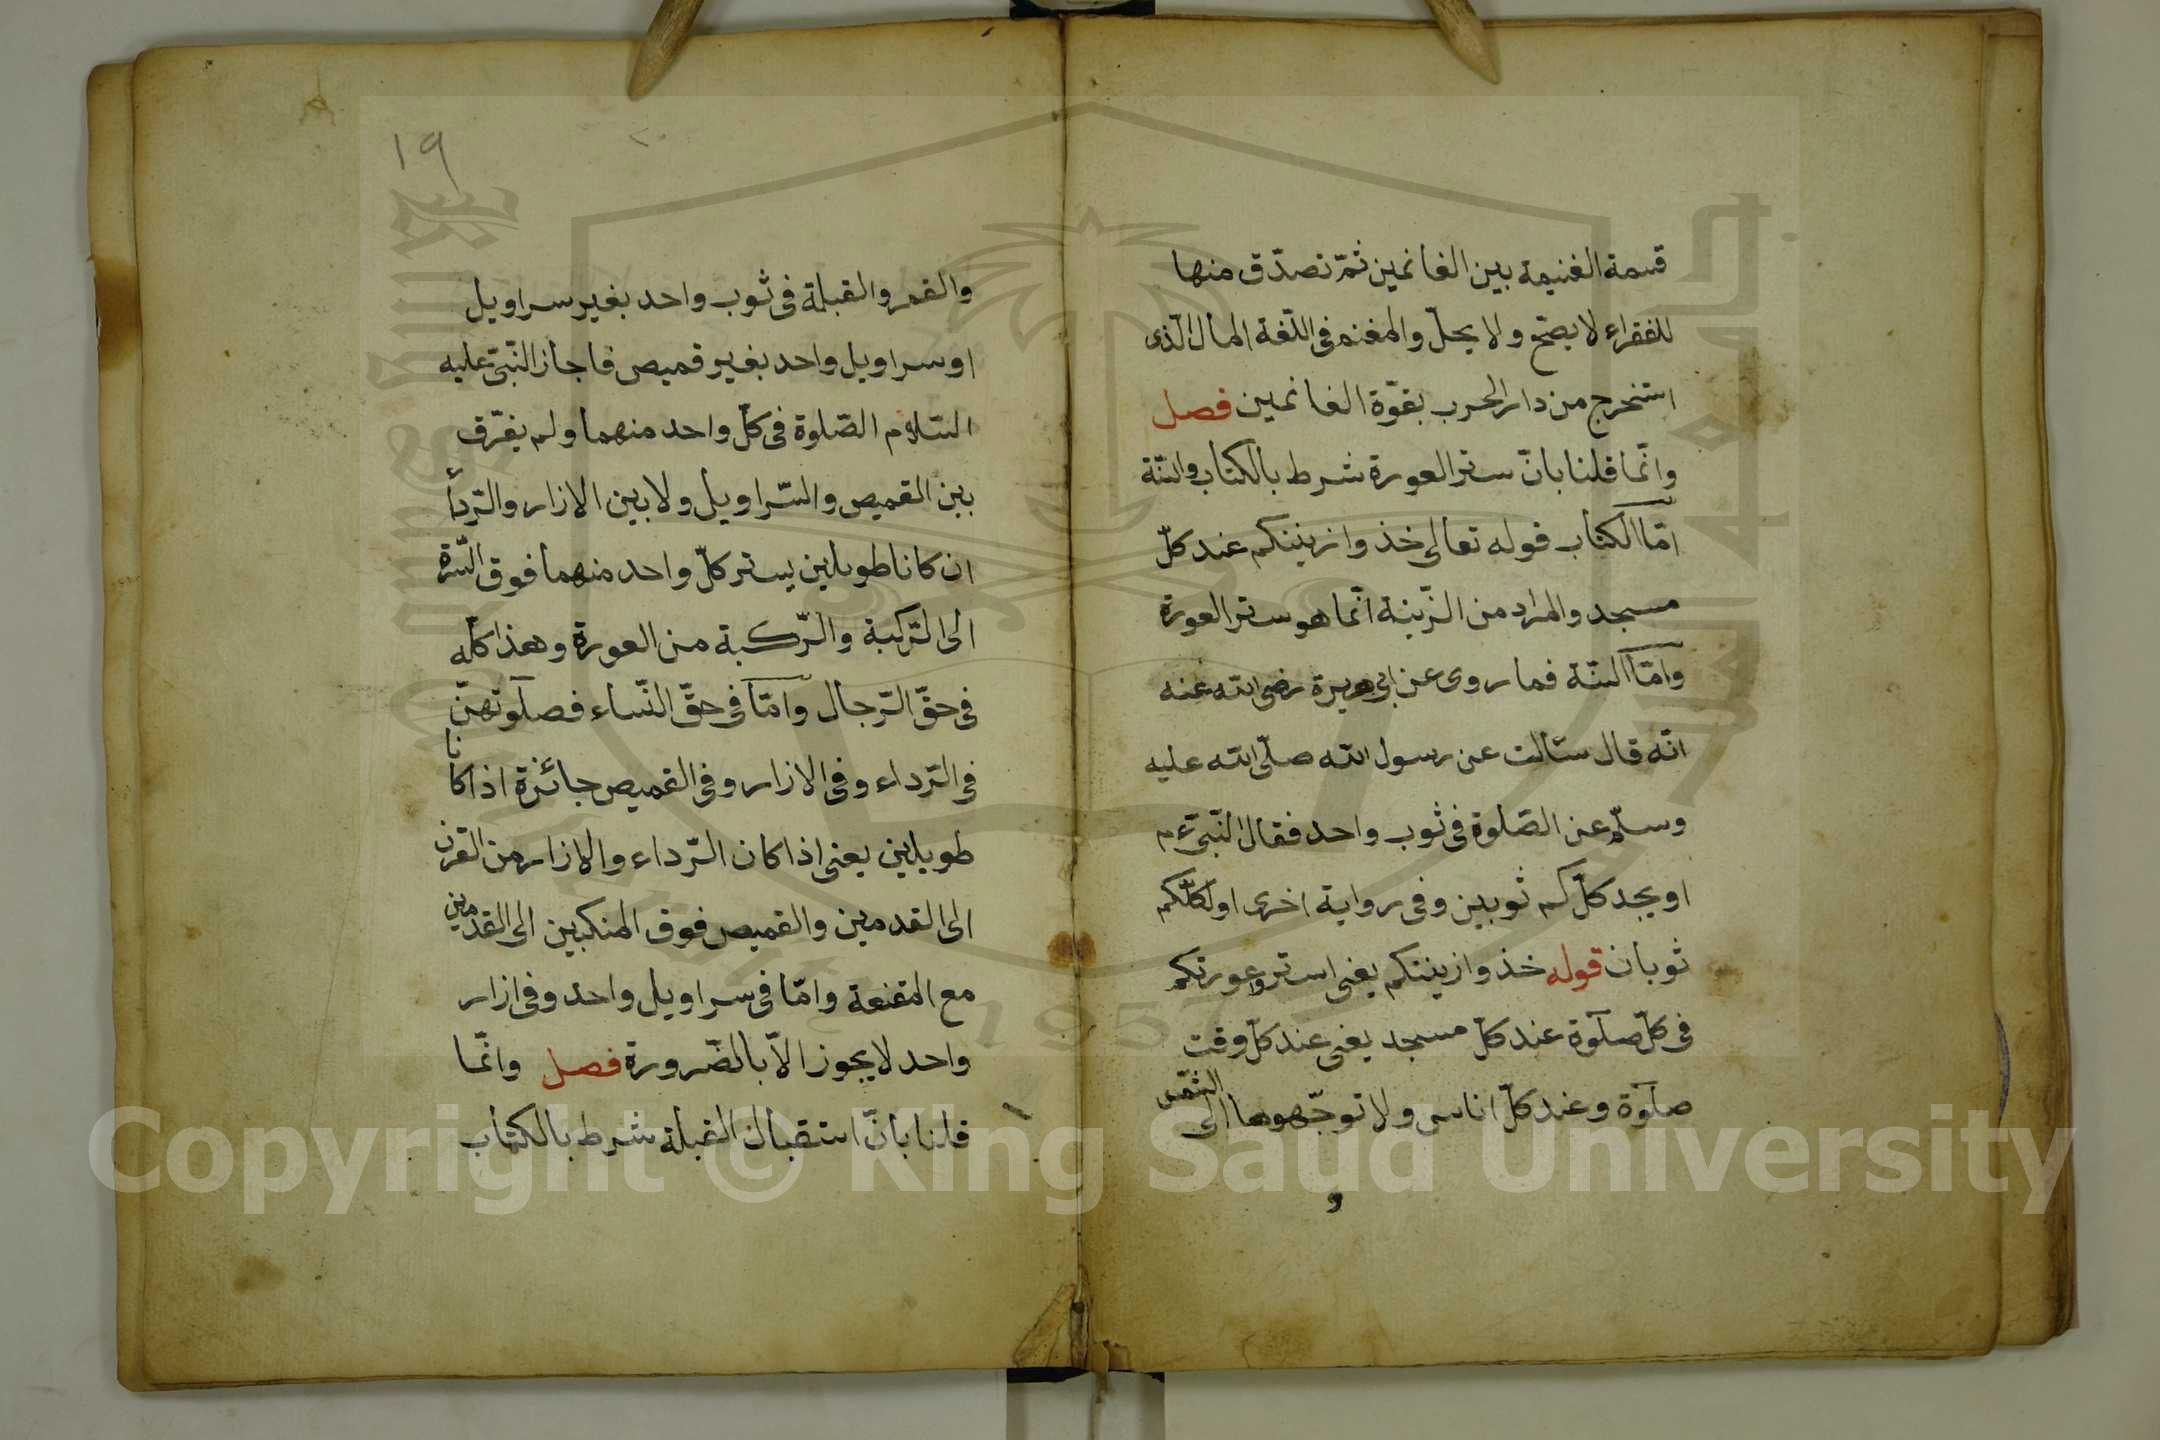 قسمة الغنيمة بين الغانمين ثمّ تصدّق منها
للفقراء لا يصحّ ولا يحلّ والمغنم فى اللّغة المال الّذى
استخرج من دار الحرب بقوّة الغانمين فصل
وانّما قلنا بانّ ستر العورة شرط بالكتاب والسّنّة
امّا الكتاب قوله تعالى خذوا زينتكم عند كلّ
مسجد والمراد من الزّينة انّما هو ستر العورة
وامّا السّنّة فما روى عن ابى هريرة رضى الله عنه
انّه قال سئالت عن رسول الله صلّى الله عليه
وسلّم عن الصّلوة فى ثوب واحد فقال النّبىّ ءم
او يجد كلّ كم ثوبين وفى رواية اخرى اولكلّكم
ثوبان قوله خذوا زينتكم يعنى استروا عورتكم
فى كلّ صلوة عند كلّ مسجد يعنى عند كلّ وقت
صلوة وعند كلّ اناس ولا توجّهوها الى الشّمس
و
١٩
٢٠
والقمر والقبلة فى ثوب واحد بغير سراويل
او سراويل واحد بغير قميص فاجاز النّبىّ عليه
السّلام الصّلوة فى كلّ واحد منهما ولم يفرّق
بين القميص والسّراويل ولا بين الازار والرّدأ
ان كانا طويلين يستر كلّ واحد منهما فوق السّرّة
الى الرّكبة والرّكبة من العورة وهذا كلّه
فى حقّ الرّجال وامّا فى حقّ النّساء فصلوتهنّ
فى الرّداء وفى الازار وفى القميص جائزة اذا كانا
طويلين يعنى اذا كان الرّداء والازار من القرن
الى القدمين والقميص فوق المنكبين الى القدمين
مع المقنعة وامّا فى سراويل واحد وفى ازار
واحد لا يجوز الاّ بالضّرورة فصل وانّما
قلنا بانّ استقبال القبلة شرط بالكتاب
Copyright © King Saud University
1957